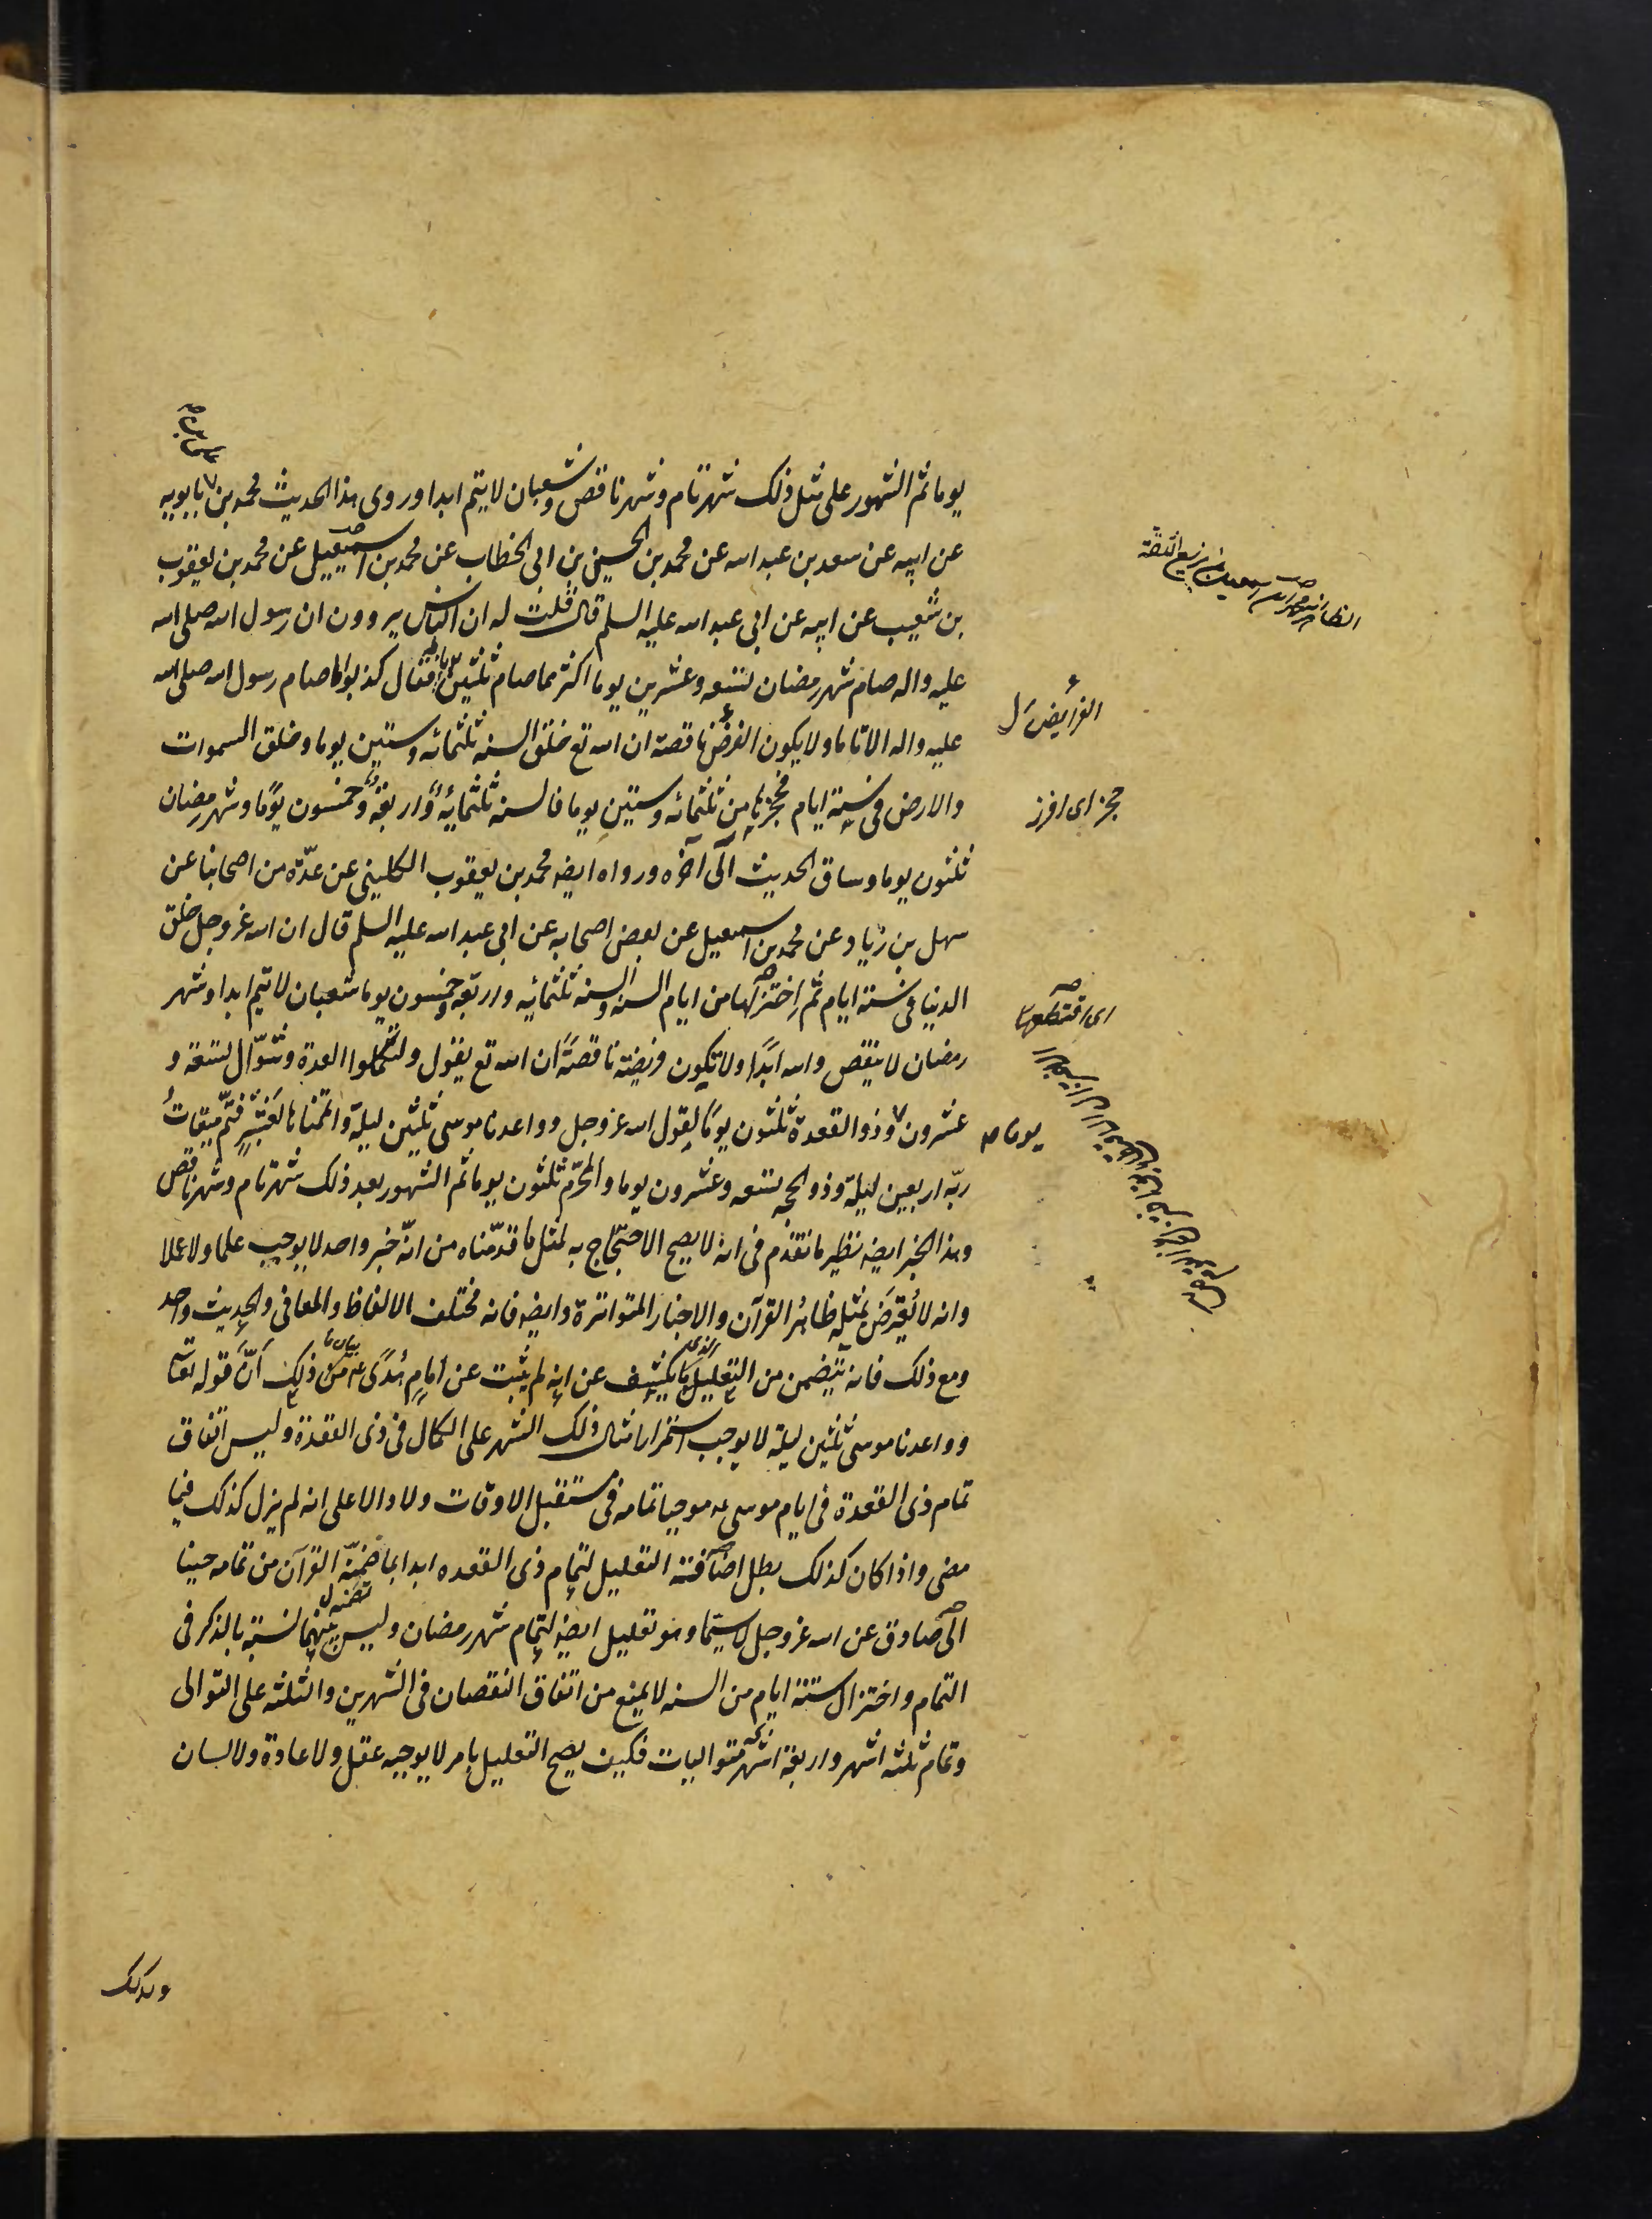 يوما ثم الشهور على مثل ذلك شهر تام وشهر ناقص وشعبان لا يتم ابدا وروى هذا الحديث محمد بن بابويه
عن ابيه عن سعد بن عبد الله عن محمد بن الحسين بن ابى الخطاب عن محمد بن اسمعيل عن محمد بن يعقوب
بن شعيب عن ابيه عن ابى عبد الله عليه السلم قال قلت له ان الناس يروون ان رسول الله صلى الله
عليه واله صام شهر رمضان تسعه وعشرين يوما اكثر مما صام ثلثين فقال كذبوا ما صام رسول الله صلى الله
الفرايض ل
عليه واله الا تاما ولا يكون الفرض ناقصة ان الله تع خلق السنه ثلثمائه وستين يوما وخلق السموات
حجز اى افرز
والارض فى ستة ايام فحجزها من ثلثمائه وستين يوما فالسنه ثلثمايه واربعة وخمسون يوما وشهر رمضان
ثلثون يوما وساق الحديث الى آخره ورواه ايضه محمد بن يعقوب الكلينى عن عدّة من اصحابنا عن
سهل بن زياد عن محمد بن اسمعيل عن بعض اصحابه عن ابى عبد الله عليه السلم قال ان الله عز وجل خلق
الدنيا فى ستة ايام ثم اختزلها من ايام السنه والسنه ثلثمائيه واربعه وخمسون يوما شعبان لا يتم ابدا وشهر
اى اقتطعها
رمضان لا ينقص والله ابدًا ولا تكون فريضته ناقصةً ان الله تع يقول ولتكملوا العدة وشوّال تسعة و
عشرون وذو القعدة ثلثون يومًا لقول الله عز وجل وواعدنا موسى ثلثين ليلة واتممناها بعشر فتمّ ميقاتُ
يوما صح
ربّه اربعين ليلة وذو الحجه تسعه وعشرون يوما والمحرّم ثلثون يوما ثم الشهور بعد ذلك شهر تام وشهر ناقص
وهذا الخبر ايضه نظير ما تقدّم فى انه لا يصح الاحتجاج به لمثل ما قدّمناه من انّه خبر واحد لا يوجب علما ولا عملا
وانه لا يُعْتَرض بمثله ظاهرُ القرآن والاخبار المتواترة وايضه فانه مختلف الالفاظ والمعانى والحديث واحد
ومع ذلك فانه يتضمن من التعليل ما يكشف عن انه لم يثبت عن امام هدًى ع من ذلك أنّ قوله تعا
وواعدنا موسى ثلثين ليلة لا يوجب استمرار امثال ذلك الشهر على الكمال فى ذى القعدة وليس اتفاق
تمام ذى القعدة فى ايام موسى ع موجبا تمامه فى مستقبل الاوقات ولا دالا على انه لم يزل كذلك فيما
مضى واذا كان كذلك بطل اضافة التعليل لتمام ذى القعده ابدا بما ضمنّه القرآن من تمامه حينا
الى صادق عن الله عز وجل لا سيّما وهو تعليل ايضه لتمام شهر رمضان وليس بينهما نسبة بالذكر فى
التمام واختزال ستة ايام من السنه لا يمنع من اتفاق النقصان فى الشهرين والثلثه على التوالى
وتمام ثلثه اشهر واربعة اشهر متواليات فكيف يصح التعليل بامر لا يوجبه عقل ولا عادة ولا لسان
وكذلك